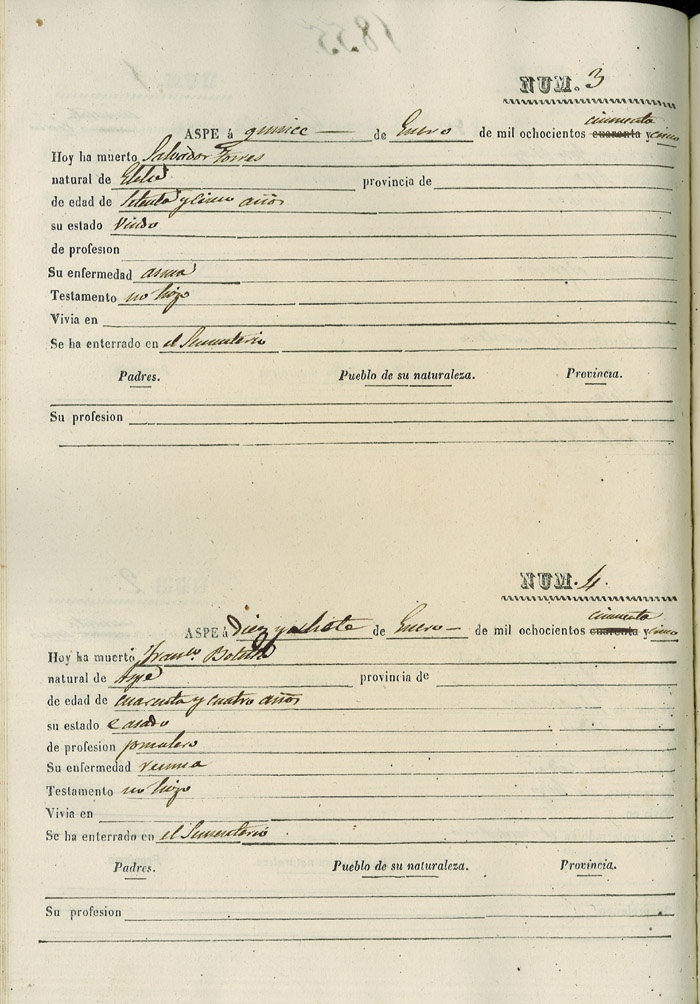 1855
NUM. 3
cincuenta
ASPE á quince de Enero de mil ochocientos cuarenta y cinco
Hoy ha muerto Salvador Torres
natural de provincia de
de edad de setenta y cinco años
su estado viudo
de profesion
Su enfermedad asma
Testamento no hizo
Vivia en
Se ha enterrado en el Sementerio
Padres. Pueblo de su naturaleza. Provincia.
Su profesion
NUM. 4.
cincuenta
ASPE á Diez y siete de Enero de mil ochocientos cuarenta y cinco
Hoy ha muerto Franco.
natural de Aspe provincia de
de edad de cuarenta y cuatro años
su estado casado
de profesion jornalero
Su enfermedad
Testamento no hizo
Vivia en
Se ha enterrado en el Sementerio
Padres. Pueblo de su naturaleza. Provincia.
Su profesion